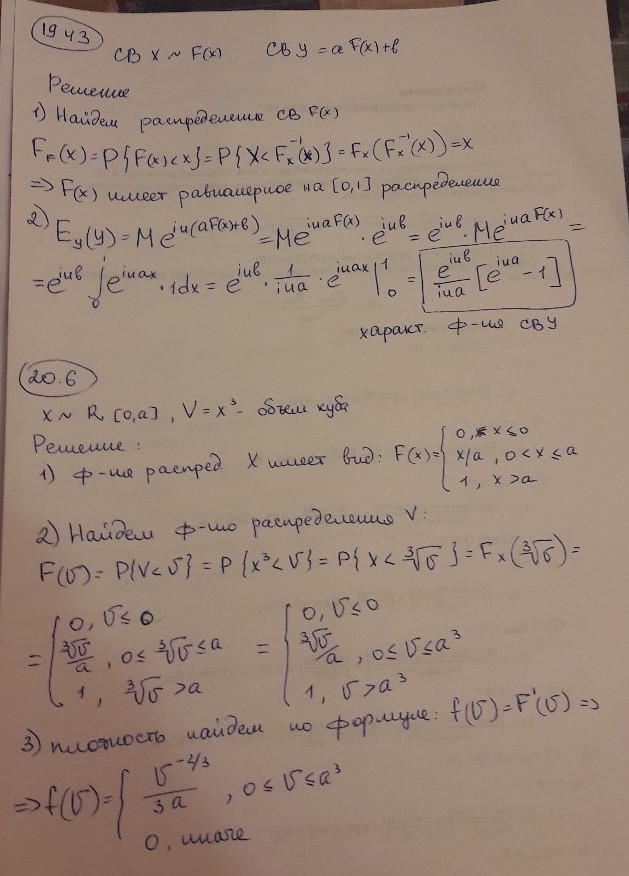 19.43
СВ X ~ F(x) СВ Y = a F(x)+b
Решение
1) Найдем распределение СВ F(x)
F_F(x) = P{F(x) < x} = P{X < F_x^{-1}(x)} = F_x(F_x^{-1}(x)) = x
=> F(x) имеет равномерное на [0,1] распределение
2) E_y(y) = M e^{iu(aF(x)+b)} = M e^{iuaF(x)} · e^{iub} = e^{iub} · M e^{iuaF(x)} =
= e^{iub} ∫_0^1 e^{iuax} · 1dx = e^{iub} · 1/iua · e^{iuax} |_0^1 = e^{iub}/iua [e^{iua} - 1]
характ. ф-ия СВ Y
20.6
X ~ R [0,a] , V = x³ - объем куба
Решение :
1) ф-ия распред X имеет вид: F(x) = { 0, x ≤ 0
x/a , 0 < x ≤ a
1, x > a
2) Найдем ф-ию распределения V:
F(v) = P{V < v} = P{x³ < v} = P{x < ∛v} = F_x(∛v) =
= { 0, v ≤ 0 = { 0, v ≤ 0
∛v/a , 0 ≤ ∛v ≤ a ∛v/a , 0 ≤ v ≤ a³
1, ∛v > a 1, v > a³
3) плотность найдем по формуле: f(v) = F'(v) =>
=> f(v) = { v^{-2/3}/3a , 0 ≤ v ≤ a³
0, иначе